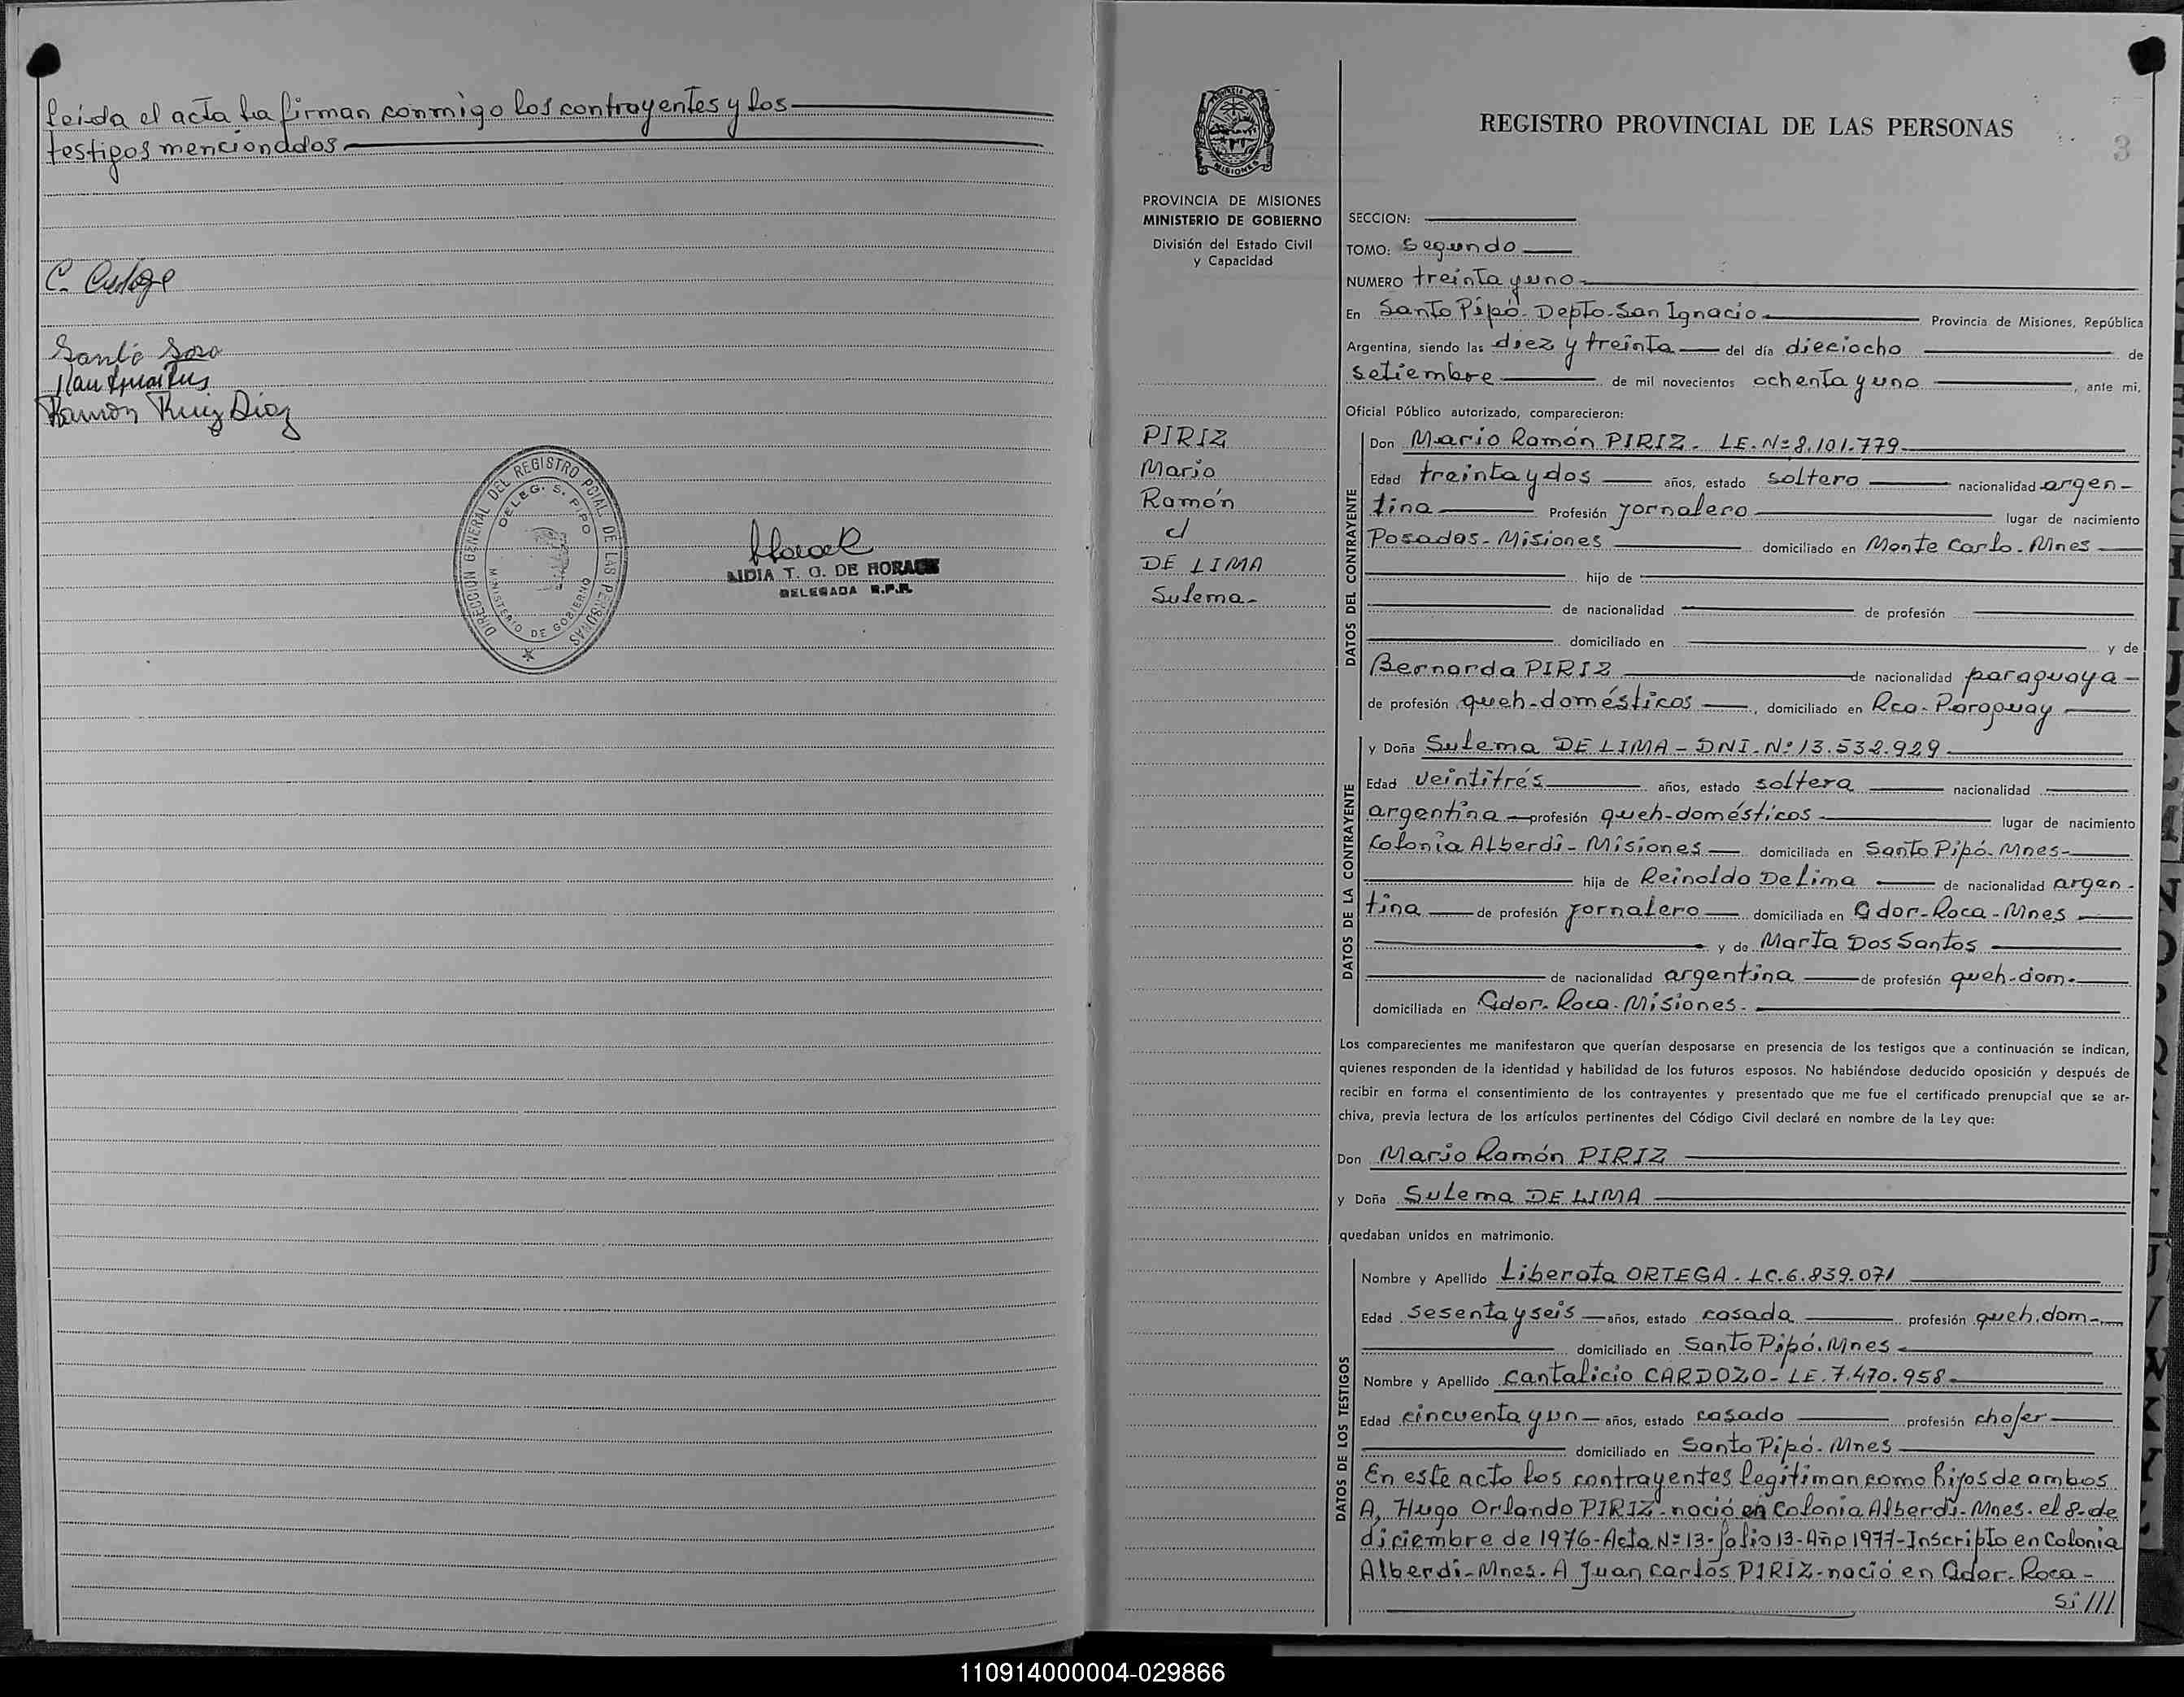 leída el acta la firman conmigo los contrayentes y los
testigos mencionados
Ramón Ruiz Díaz
DIRECCION GENERAL DEL REGISTRO PCIAL. DE LAS PERSONAS
DELEG. S. PIPO
MINISTERIO DE GOBIERNO
LIDIA T. G. DE HORACK
DELEGADA R.P.P.
MISIONES
PROVINCIA DE MISIONES
MINISTERIO DE GOBIERNO
División del Estado Civil
y Capacidad
PIRIZ
Mario
Ramón
c/
DE LIMA
Sulema-
REGISTRO PROVINCIAL DE LAS PERSONAS
3
SECCION:
TOMO: Segundo
NUMERO treinta y uno
En Santo Pipó- Depto- San Ignacio Provincia de Misiones, República
Argentina, siendo las diez y treinta del día dieciocho de
setiembre de mil novecientos ochenta y uno, ante mi,
Oficial Público autorizado, comparecieron:
DATOS DEL CONTRAYENTE
Don Mario Ramón PIRIZ- LE. Nº 8.101.779-
Edad treinta y dos años, estado soltero nacionalidad argen-
tina Profesión jornalero lugar de nacimiento
Posadas- Misiones domiciliado en Monte Carlo- Mnes
hijo de
de nacionalidad de profesión
domiciliado en y de
Bernarda PIRIZ de nacionalidad paraguaya-
de profesión queh-domésticos, domiciliado en Rca- Paraguay
DATOS DE LA CONTRAYENTE
y Doña Sulema DE LIMA - DNI- Nº 13.532.929
Edad veintitrés años, estado soltera nacionalidad
argentina profesión queh-domésticos- lugar de nacimiento
Colonia Alberdi- Misiones domiciliada en Santo Pipó- Mnes-
hija de Reinoldo De Lima de nacionalidad argen-
tina de profesión jornalero domiciliada en Gdor- Roca- Mnes
y de Marta Dos Santos
de nacionalidad argentina de profesión queh-dom-
domiciliada en Gdor- Roca- Misiones-
Los comparecientes me manifestaron que querían desposarse en presencia de los testigos que a continuación se indican,
quienes responden de la identidad y habilidad de los futuros esposos. No habiéndose deducido oposición y después de
recibir en forma el consentimiento de los contrayentes y presentado que me fue el certificado prenupcial que se ar-
chiva, previa lectura de los artículos pertinentes del Código Civil declaré en nombre de la Ley que:
Don Mario Ramón PIRIZ
y Doña Sulema DE LIMA
quedaban unidos en matrimonio.
DATOS DE LOS TESTIGOS
Nombre y Apellido Liberata ORTEGA- LC.6.839.071
Edad sesenta y seis años, estado casada profesión queh.dom-
domiciliado en Santo Pipó. Mnes
Nombre y Apellido Cantalicio CARDOZO- LE. 7.470.958
Edad cincuenta y un años, estado casado profesión chofer
domiciliado en Santo Pipó- Mnes
En este acto los contrayentes legitiman como hijos de ambos
A, Hugo Orlando PIRIZ- nació en Colonia Alberdi- Mnes- el 8- de
diciembre de 1976- Acta Nº 13- folio 13- Año 1977- Inscripto en Colonia
Alberdi- Mnes. A Juan Carlos PIRIZ- nació en Gdor- Roca-
si///
110914000004-029866